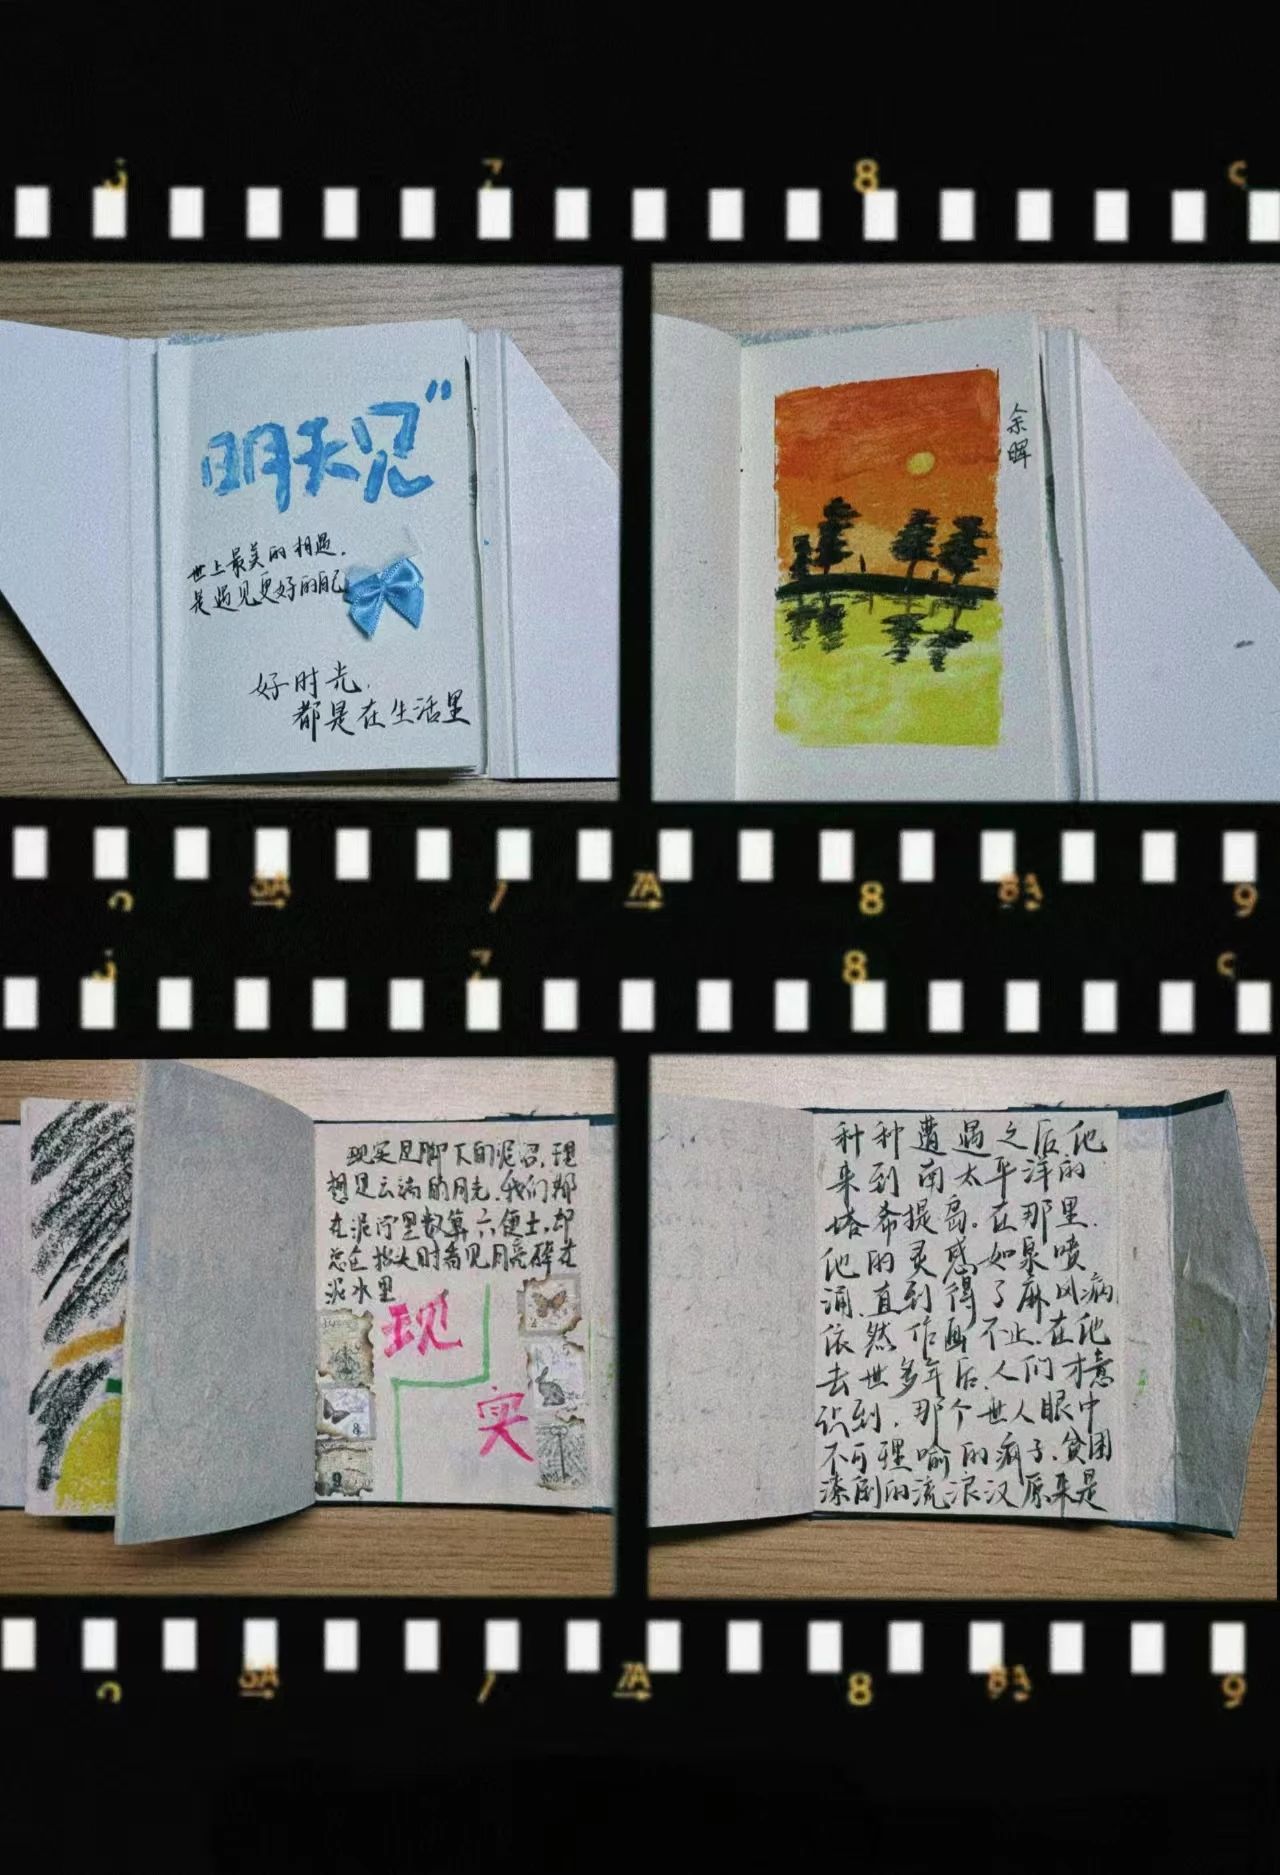 8
明天见"
世上最美的相遇，
是遇见更好的自己
好时光，
都是在生活里
余晖
7A
8
8A
9
8
现实是脚下的泥沼，理
想是云端的月光，我们都
在泥泞里数算六便士，却
总在抬头时看见月亮碎在
泥水里
现
实
8
9
种种遭遇之后，他
来到南太平洋的
塔希提岛，在那里，
他的灵感如泉喷
涌，直到得了麻风病
依然作画不止，在他
去世多年后，人们才意
识到，那个世人眼中
不可理喻的疯子、贫困
潦倒的流浪汉原来是
7A
8
8A
9